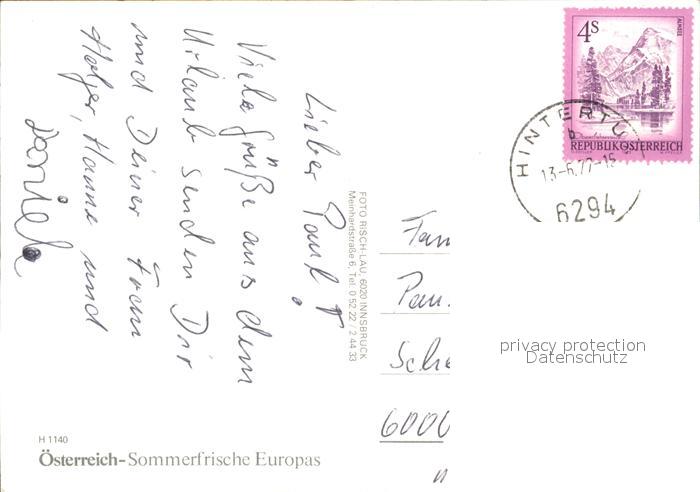 Lieber Paul!
Viele Grüße aus dem
Urlaub senden Dir
und Deiner Frau
Holger, Hanne und
Daniela
FOTO RISCH-LAU, 6020 INNSBRUCK
Meinhardstraße 6, Tel. 0 52 22 / 2 44 33
H 1140
Österreich-Sommerfrische Europas
4S
ALMSEE
REPUBLIK ÖSTERREICH
HINTERTU
b
13-6.77-15
6294
Fam
Pau
Sche
6000
privacy protection
Datenschutz